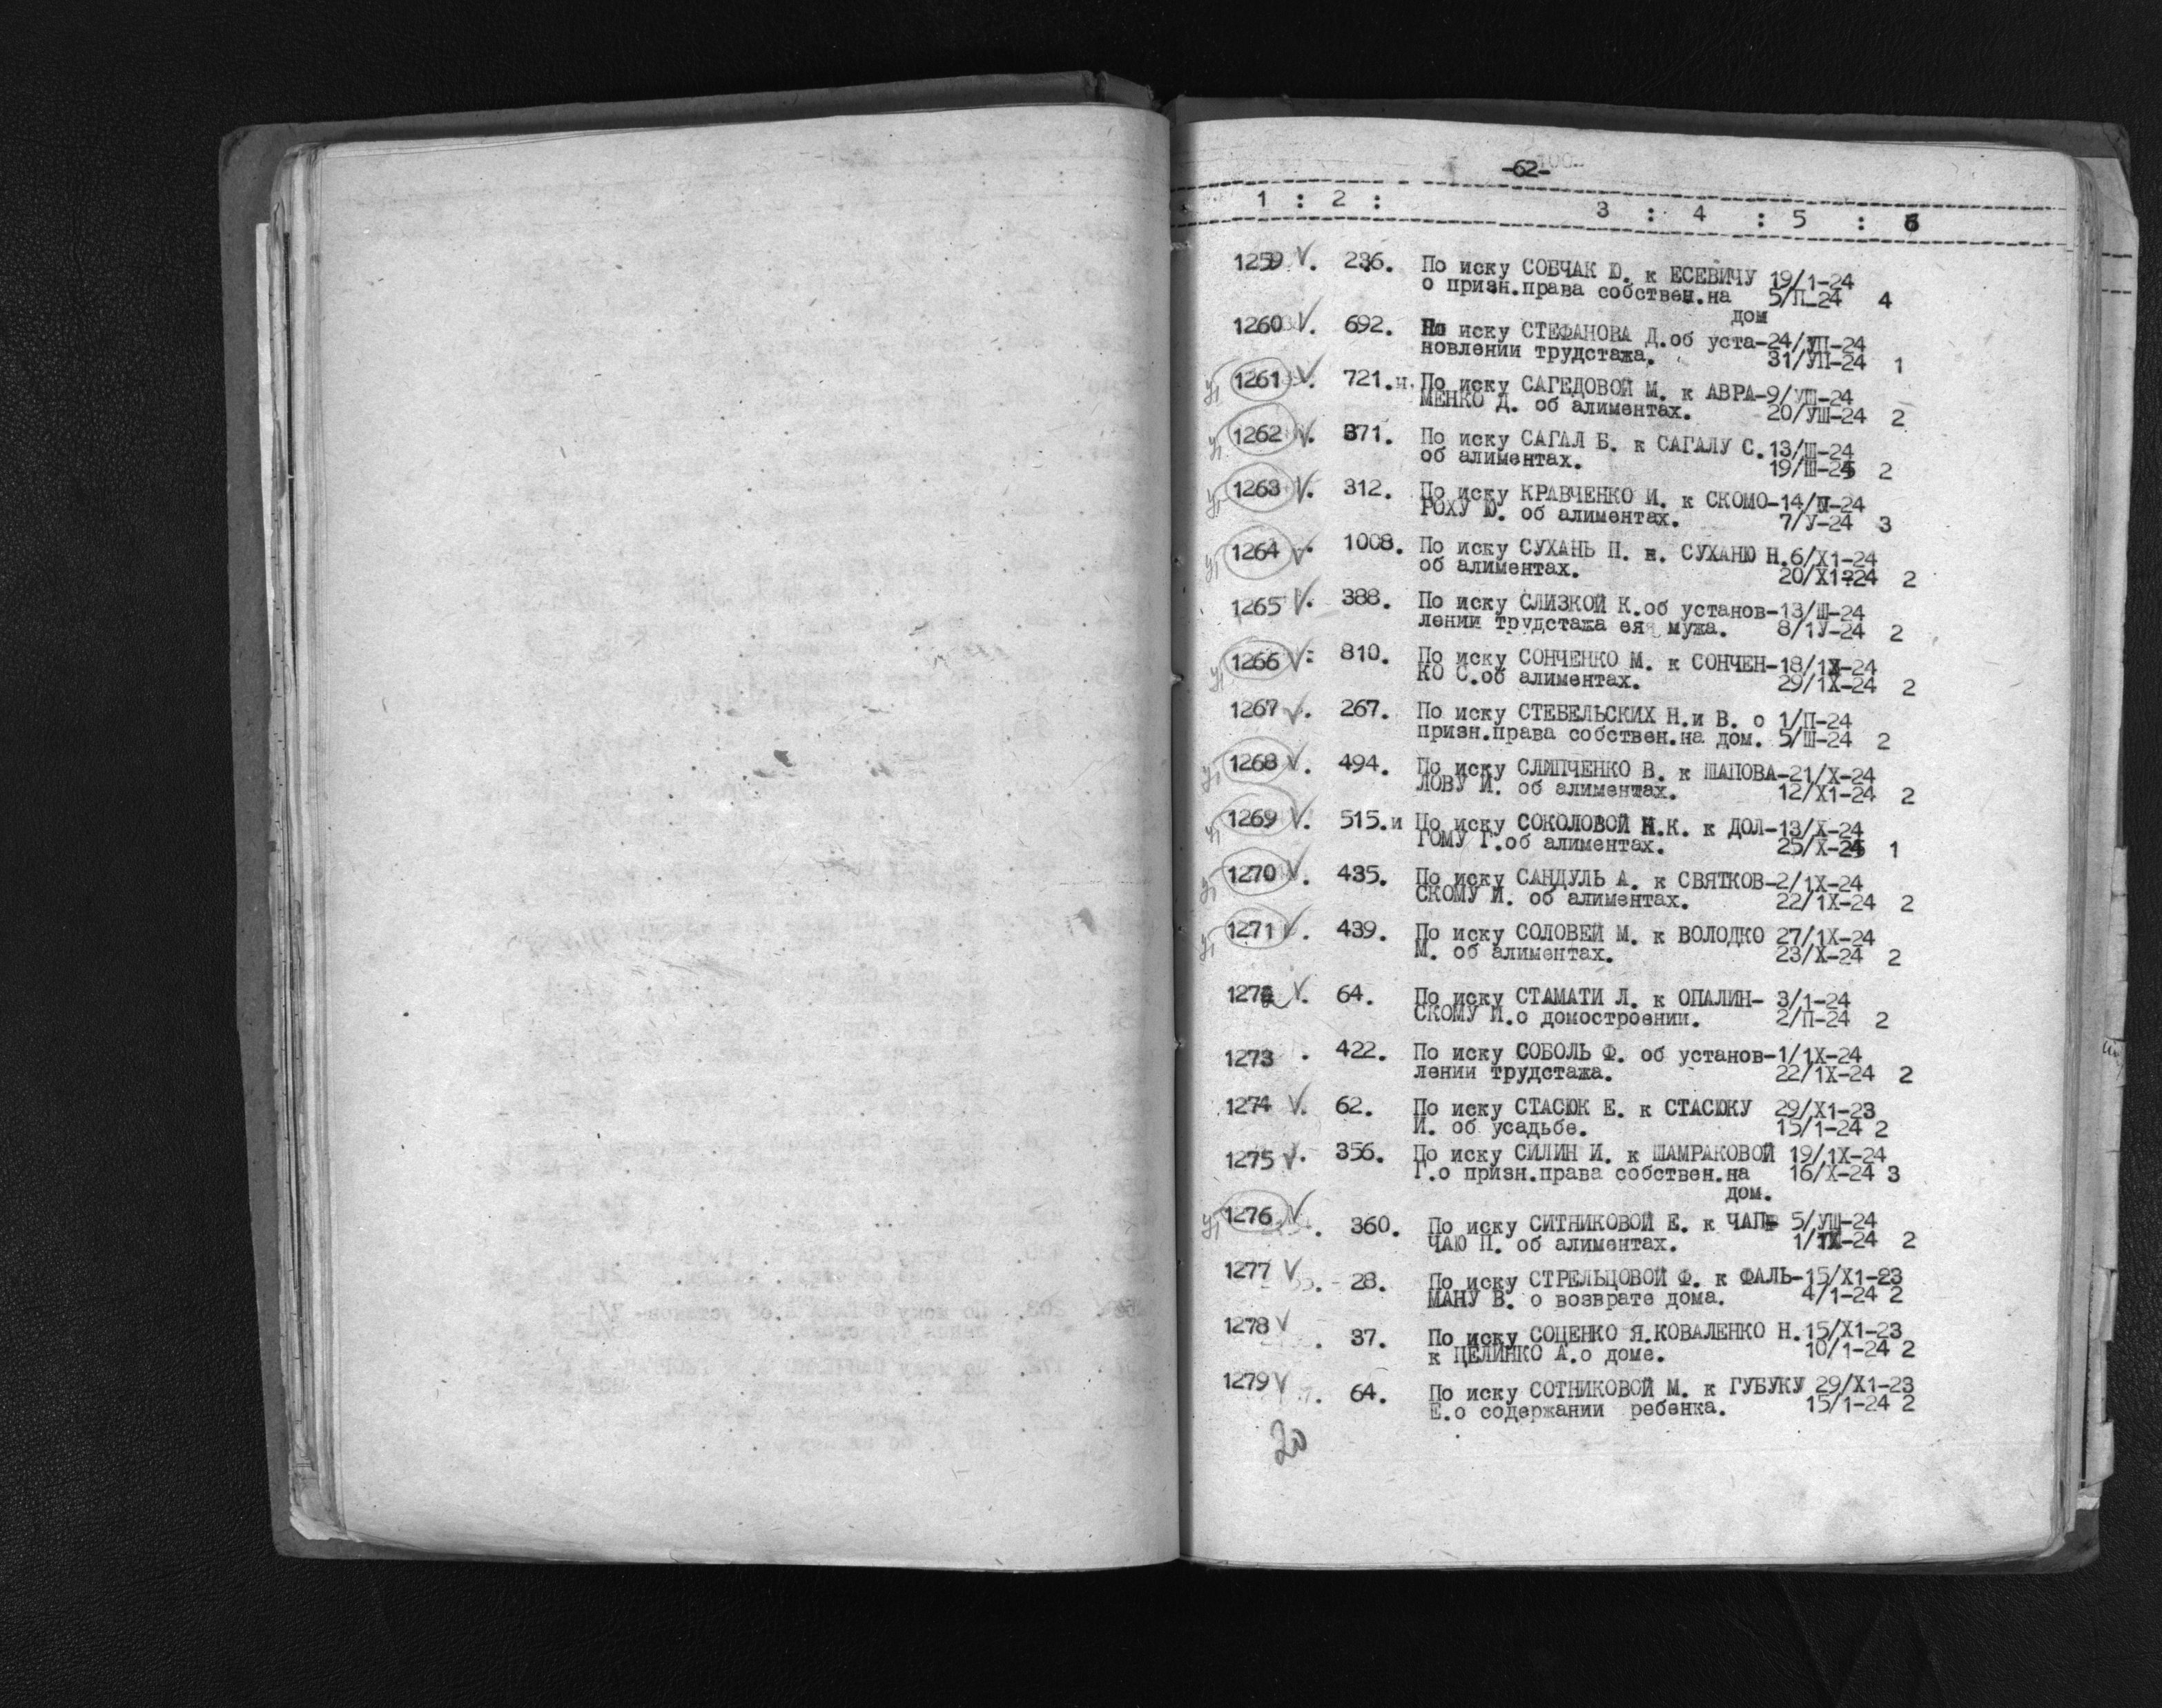 -62-
1 : 2 : 3 : 4 : 5 : 6
1259 V. 236. По иску СОБЧАК Ю. к ЕСЕВИЧУ 19/1-24
о призн.права собствен.на 5/П-24 4
дом
1260 V. 692. По иску СТЕФАНОВА Д.об уста-24/УП-24
новлении трудстажа. 31/УП-24 1
1261 V. 721.и. По иску САГЕДОВОЙ М. к АВРА-9/УШ-24
МЕНКО Д. об алиментах. 20/УШ-24 2
1262 V. 371. По иску САГАЛ Б. к САГАЛУ С.13/Ш-24
об алиментах. 19/Ш-24 2
1263 V. 312. По иску КРАВЧЕНКО И. к СКОМО-14/-24
РОХУ Ю. об алиментах. 7/У-24 3
1264 V. 1008. По иску СУХАНЬ П. к. СУХАНЮ Н.6/Х1-24
об алиментах. 20/Х1-24 2
1265 V. 388. По иску СЛИЗКОЙ К.об установ-13/Ш-24
лении трудстажа ея мужа. 8/1У-24 2
1266 V. 810. По иску СОНЧЕНКО М. к СОНЧЕН-18/1Х-24
КО С.об алиментах. 29/1Х-24 2
1267 V. 267. По иску СТЕБЕЛЬСКИХ Н.и В. о 1/П-24
призн.права собствен.на дом. 5/Ш-24 2
1268 V. 494. По иску СЛИПЧЕНКО В. к ШАПОВА-21/Х-24
ЛОВУ И. об алиментах. 12/Х1-24 2
1269 V. 515.и По иску СОКОЛОВОЙ Н.К. к ДОЛ-13/Х-24
ГОМУ Г.об алиментах. 25/Х-24 1
1270 V. 435. По иску САНДУЛЬ А. к СВЯТКОВ-2/1Х-24
СКОМУ И. об алиментах. 22/1Х-24 2
1271 V. 439. По иску СОЛОВЕЙ М. к ВОЛОДКО 27/1Х-24
М. об алиментах. 23/Х-24 2
1272 V. 64. По иску СТАМАТИ Л. к ОПАЛИН- 3/1-24
СКОМУ И.о домостроении. 2/П-24 2
1273 . 422. По иску СОБОЛЬ Ф. об установ-1/1Х-24
лении трудстажа. 22/1Х-24 2
1274 V. 62. По иску СТАСЮК Е. к СТАСЮКУ 29/Х1-23
И. об усадьбе. 15/1-24 2
1275 V. 356. По иску СИЛИН И. к ШАМРАКОВОЙ 19/1Х-24
Г.о призн.права собствен.на 16/Х-24 3
дом.
1276 V. 360. По иску СИТНИКОВОЙ Е. к ЧАП- 5/УШ-24
ЧАЮ П. об алиментах. 1/1Х-24 2
1277 V. 28. По иску СТРЕЛЬЦОВОЙ Ф. к ФАЛЬ-15/Х1-23
МАНУ В. о возврате дома. 4/1-24 2
1278 V . 37. По иску СОЦЕНКО Я.КОВАЛЕНКО Н.15/Х1-23
к ЦЕЛИНКО А.о доме. 10/1-24 2
1279 V . 64. По иску СОТНИКОВОЙ М. к ГУБУКУ 29/Х1-23
Е.о содержании ребенка. 15/1-24 2
20